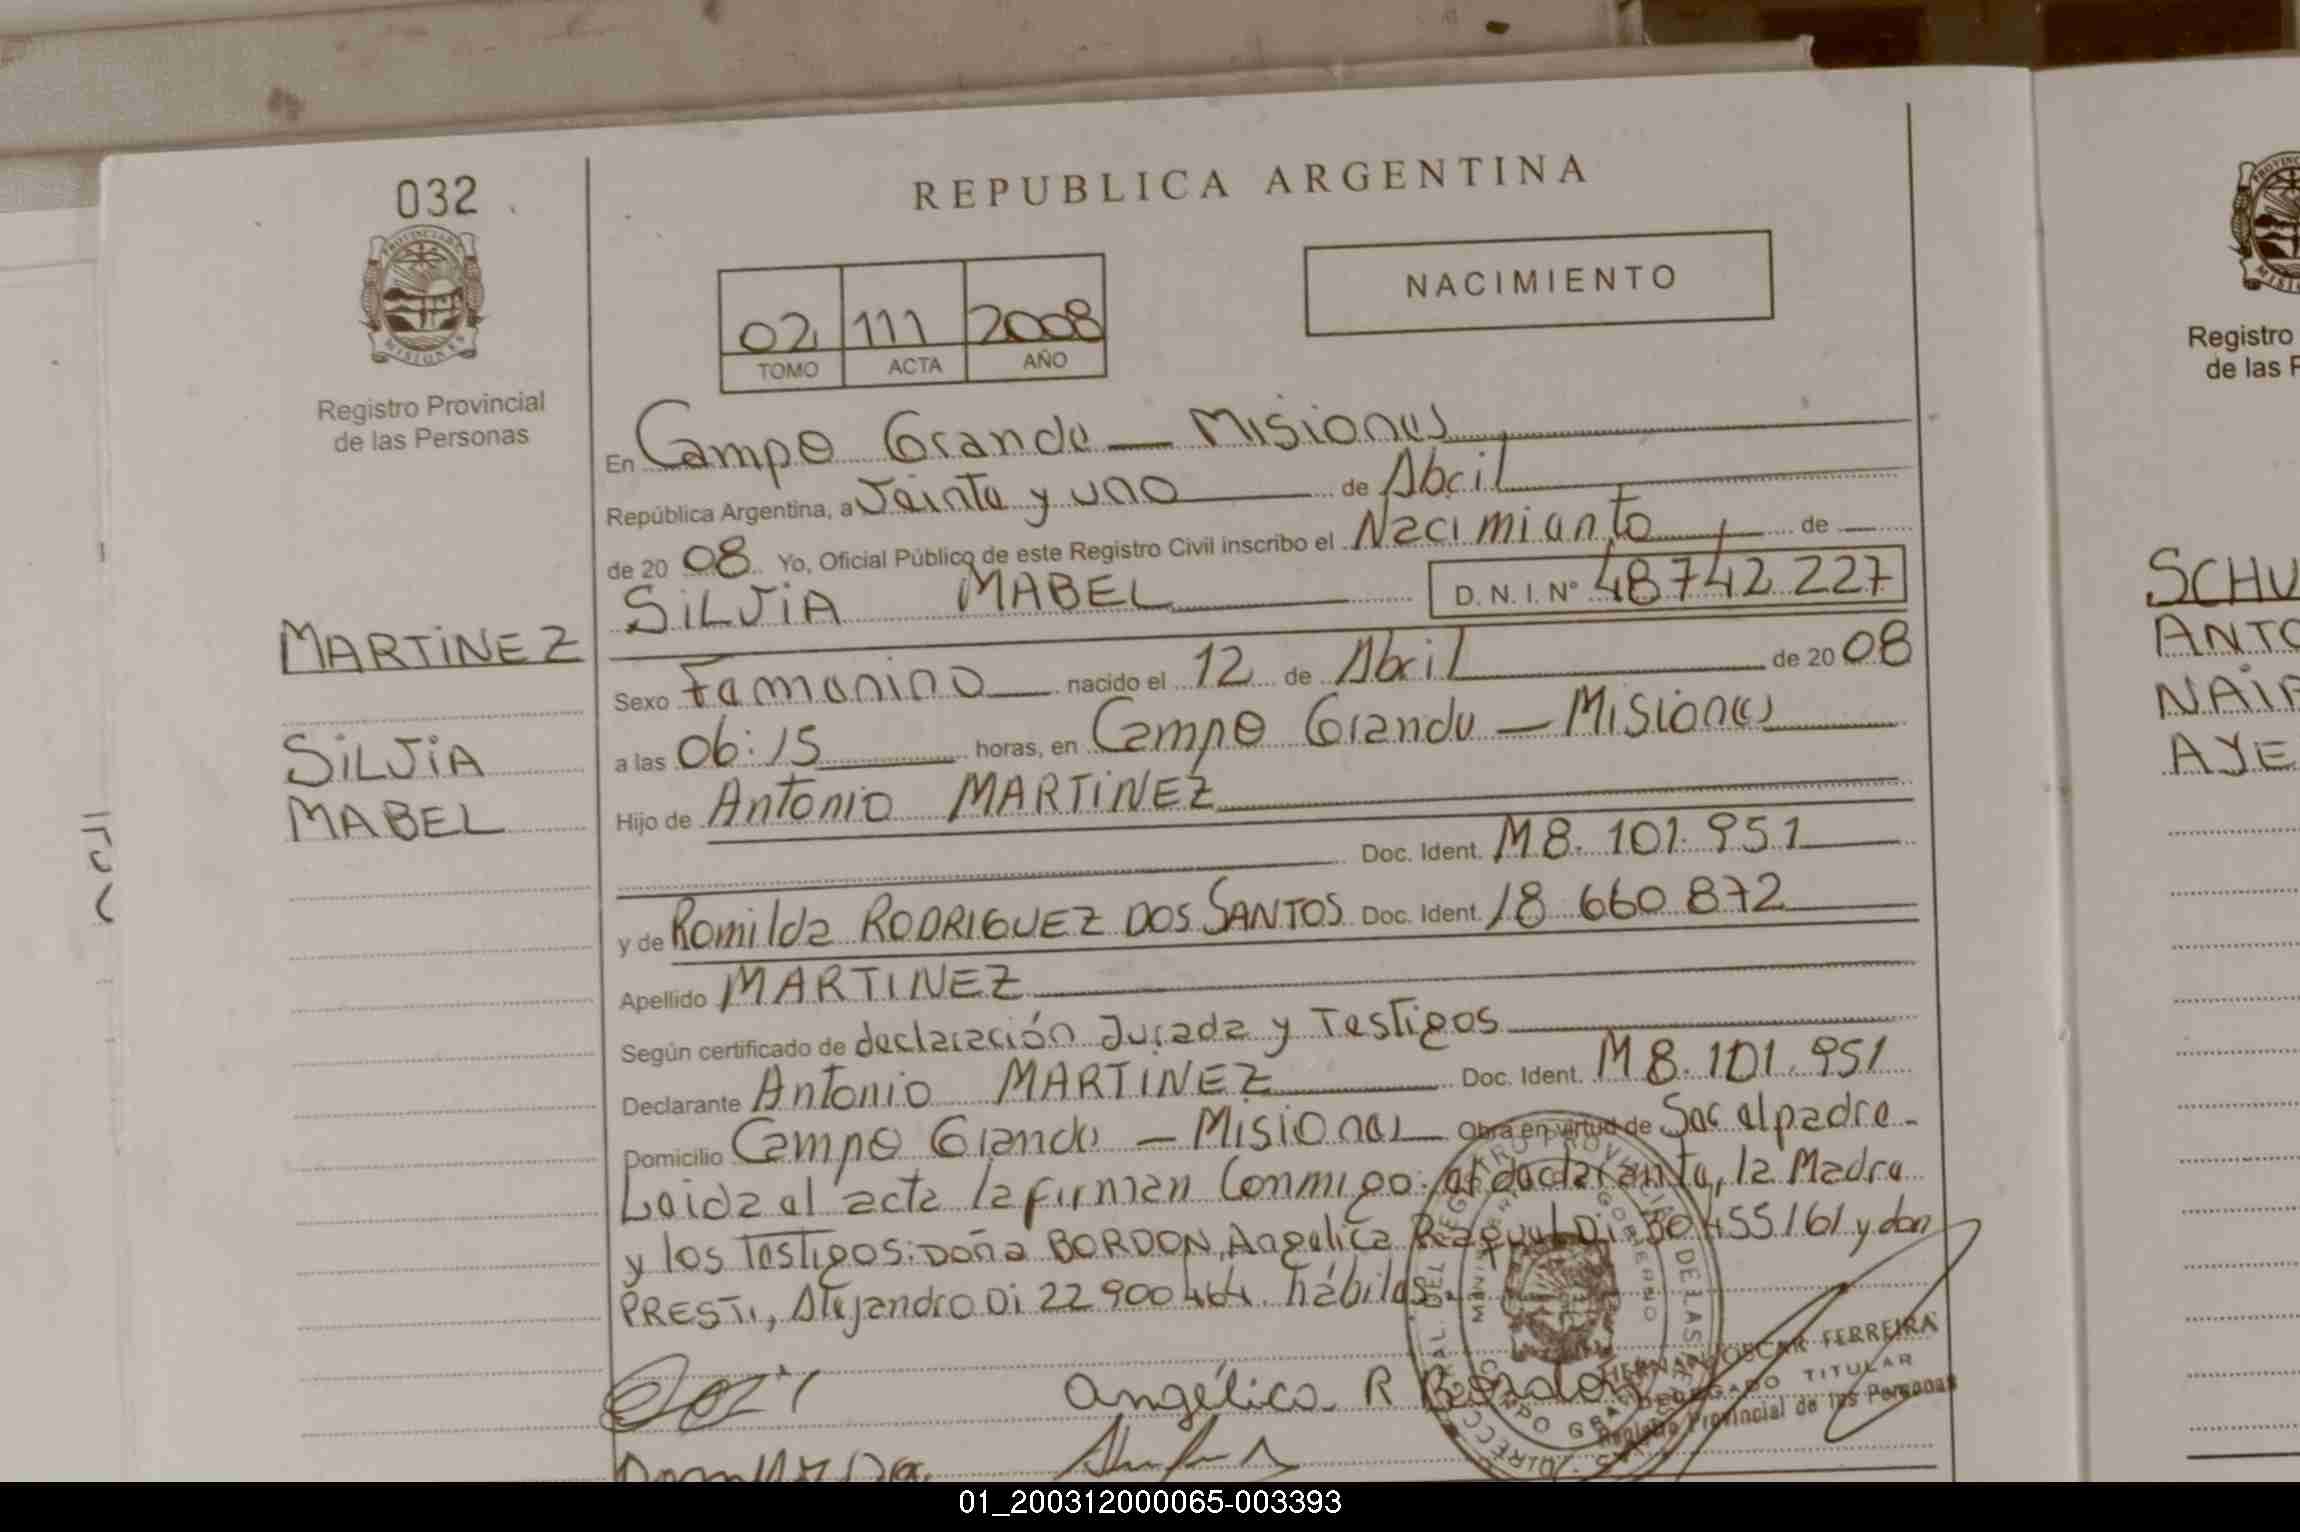 032
REPUBLICA ARGENTINA
NACIMIENTO
02 111 2008
TOMO ACTA AÑO
PROVINCIA DE MISIONES
Registro Provincial
de las Personas
En Campo Grande — Misiones
República Argentina, a Veinte y uno de Abril
de 20 08 Yo, Oficial Público de este Registro Civil inscribo el Nacimiento de
SILVIA MABEL D. N. I. Nº 48742227
MARTINEZ
SILVIA
MABEL
Sexo Femenino nacido el 12 de Abril de 20 08
a las 06:15 horas, en Campo Grande — Misiones
Hijo de Antonio MARTINEZ
Doc. Ident. M8.101.951
y de Romilda RODRIGUEZ DOS SANTOS Doc. Ident. 18 660 872
Apellido MARTINEZ
Según certificado de declaración Jurada y Testigos
Declarante Antonio MARTINEZ Doc. Ident. M8.101.951
Domicilio Campo Grande — Misiones Obra en virtud de Ser el padre-
Leida el acta la firman Conmigo: el declarante, la Madre
y los Testigos: Doña BORDON, Angelica Raquel Di 30455161 y don
PRESTI, Alejandro Di 22 900 464 hábiles.
Angélica R Bordon
HERNAN OSCAR FERREIRA
DELEGADO TITULAR
Registro Provincial de las Personas
Registro
de las
SCHU
ANTO
NAIR
AYE
01_200312000065-003393